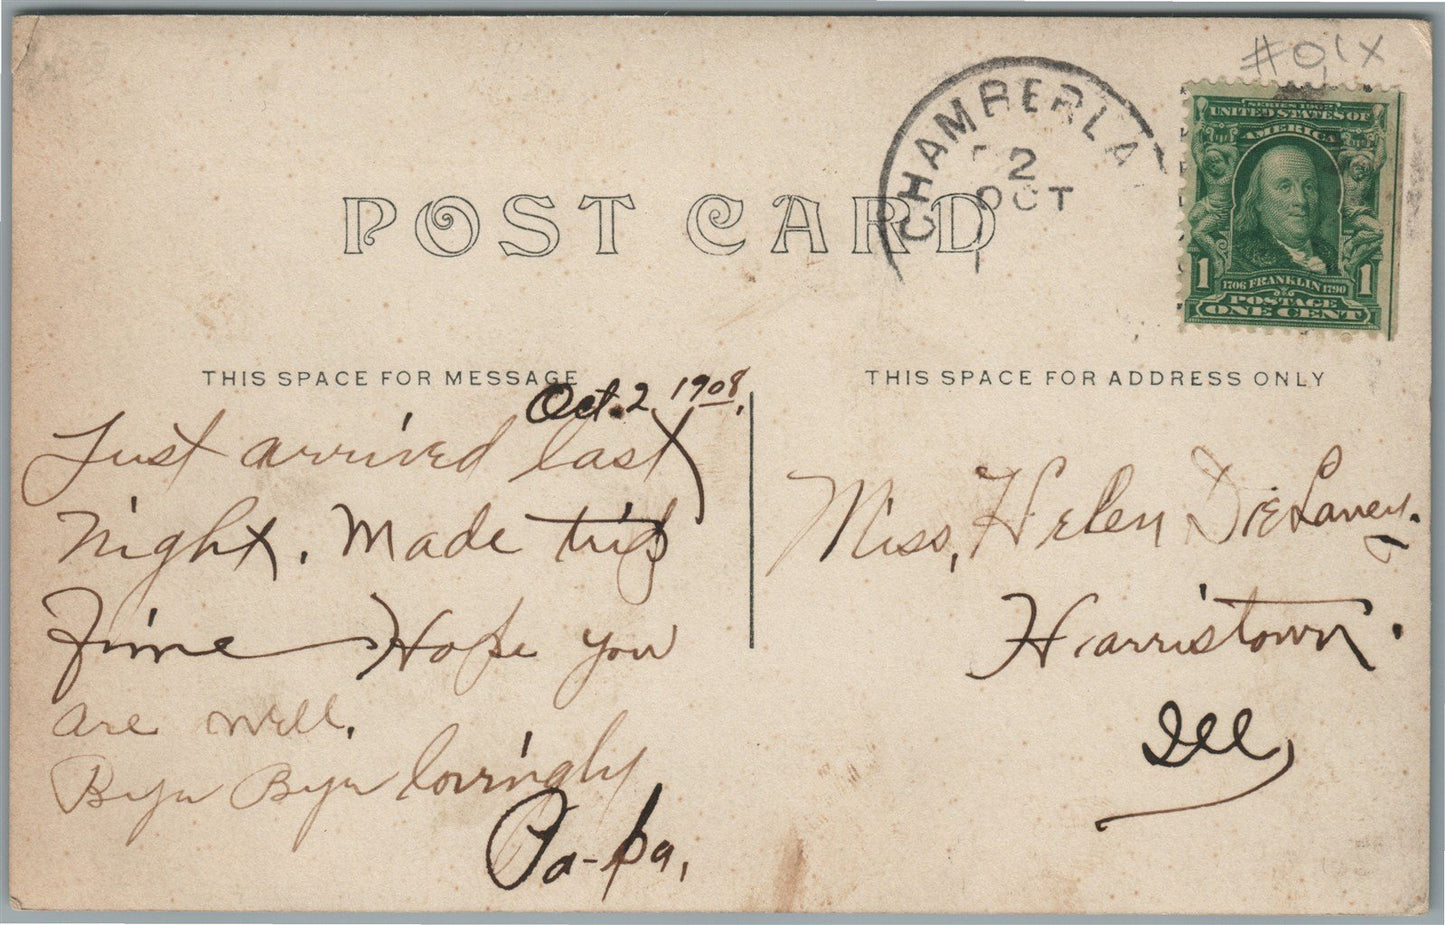 #01X
CHAMBERLA
2
OCT
SERIES 1902
UNITED STATES OF
AMERICA
1 1
1706 FRANKLIN 1790
POSTAGE
ONE CENT
POST CARD
THIS SPACE FOR MESSAGE
Oct. 2, 1908,
Just arrived last
Night. Made trip
Fine Hope you
are well.
Bye Bye lovingly
Pa-pa,
THIS SPACE FOR ADDRESS ONLY
Miss, Helen DeLaney.
Harristown.
Ill,